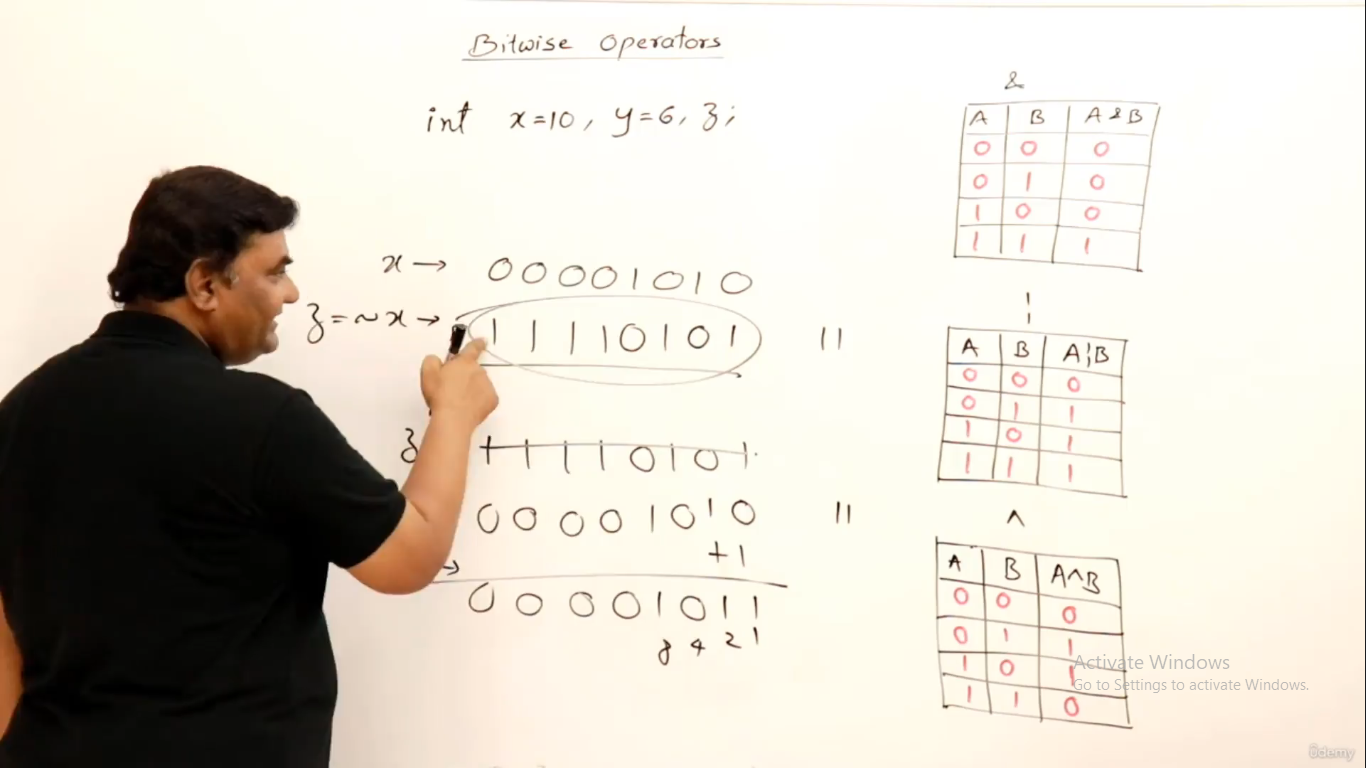 Bitwise Operators
int x=10, y=6, z;
x → 00001010
z=~x → 11110101 11
z 11110101
00001010 11
+1
→
00001011
8 4 2 1
&
A B A&B
0 0 0
0 1 0
1 0 0
1 1 1
¦
A B A¦B
0 0 0
0 1 1
1 0 1
1 1 1
^
A B A^B
0 0 0
0 1 1
1 0 1
1 1 0
Activate Windows
Go to Settings to activate Windows.
ûdemy